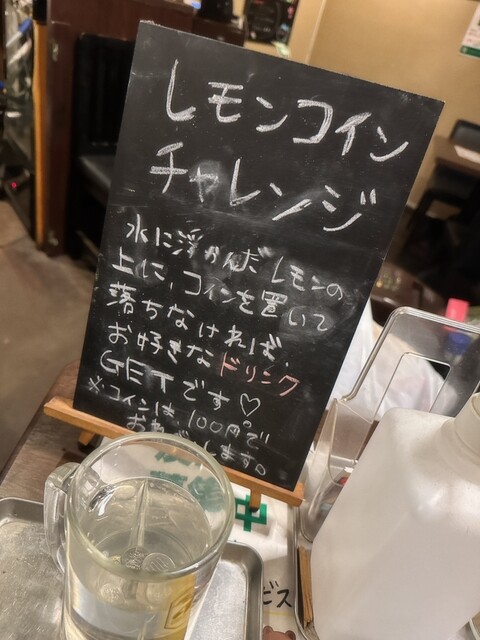 レモンコイン
チャレンジ
水に浮かんだレモンの
上に、コインを置いて
落ちなければ、
お好きなドリンク
GETです♡
※コインは100円で
お願いします。
中
ビス